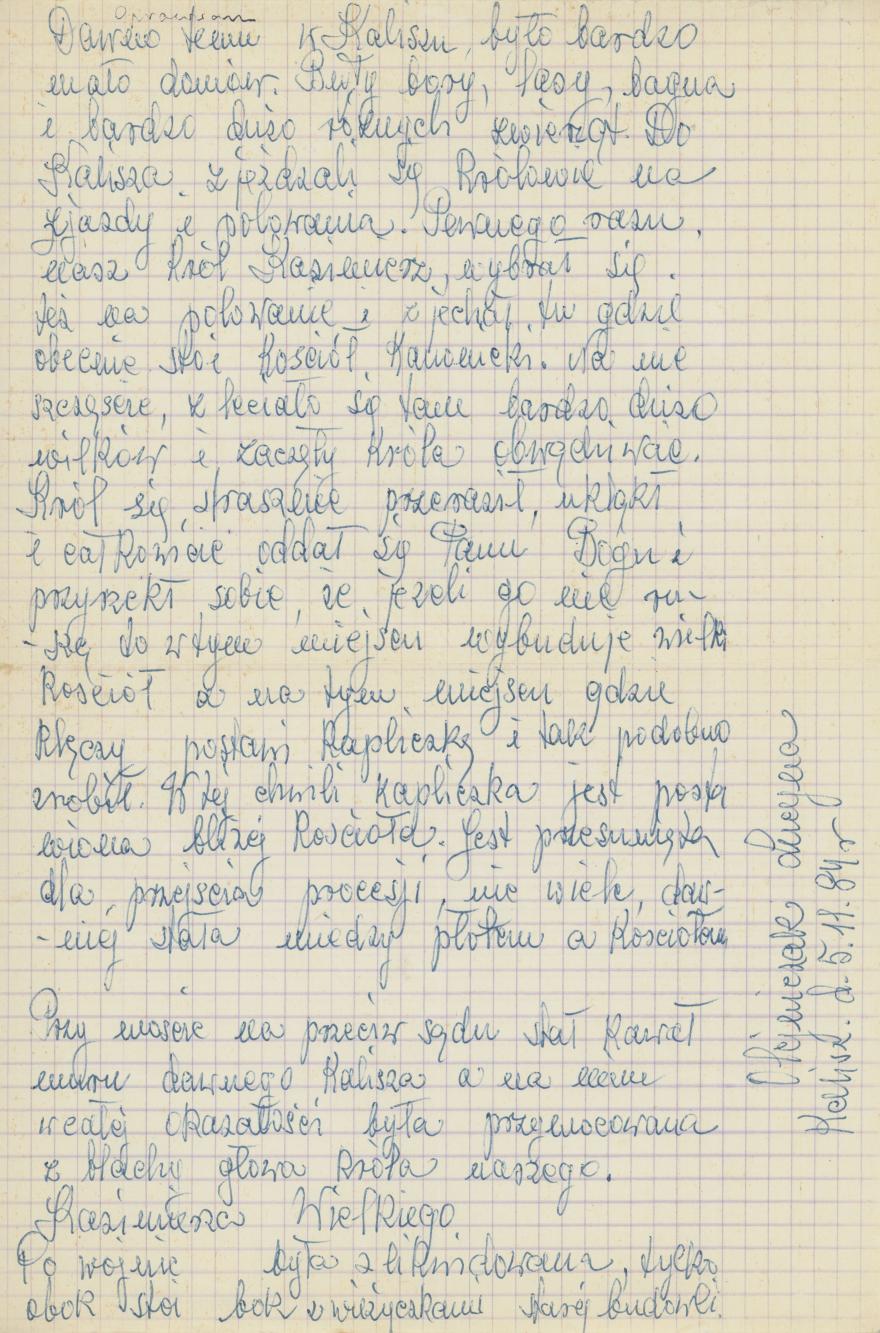 Dawno temu w Kaliszu, było bardzo
mało domów. Były bory, lasy, bagna
i bardzo dużo różnych zwierząt. Do
Kalisza zjeżdzali się Królowie na
zjazdy i polowania. Pewnego razu,
nasz Król Kazimierz, wybrał się
też na polowanie i zjechał tu gdzie
obecnie stoi Kościół Kanonicki. Na nie
szczęście, z leciało się tam bardzo dużo
wilków i zaczęły Króla obwądiwać.
Król się strasznie przeraził, uklękł
i całkowicie oddał się Panu Bogu i
przyrzekł sobie, że jeżeli go nie ru-
-szą to w tym miejscu wybuduje wielki
Kościół a na tym miejscu gdzie
Klęczy postawi Kapliczkę i tak podobno
zrobił. W tej chwili Kapliczka jest posta
wiona bliżej Kościoła. Jest przesunięta
dla przejścia procesji, nie wiele, daw-
-niej stała miedzy płotem a Kościołem
Przy moście na przeciw sądu stał Kawał
muru dawnego Kalisza a na nim
wcałej okazałości była przymocowana
z blachy głowa Króla naszego.
Kazimierza Wielkiego
Po wojnie była zlikwidowana, tylko
obok stoi bok z wieżyczkami starej budowli.
Kalisz. d. 5.11.84r